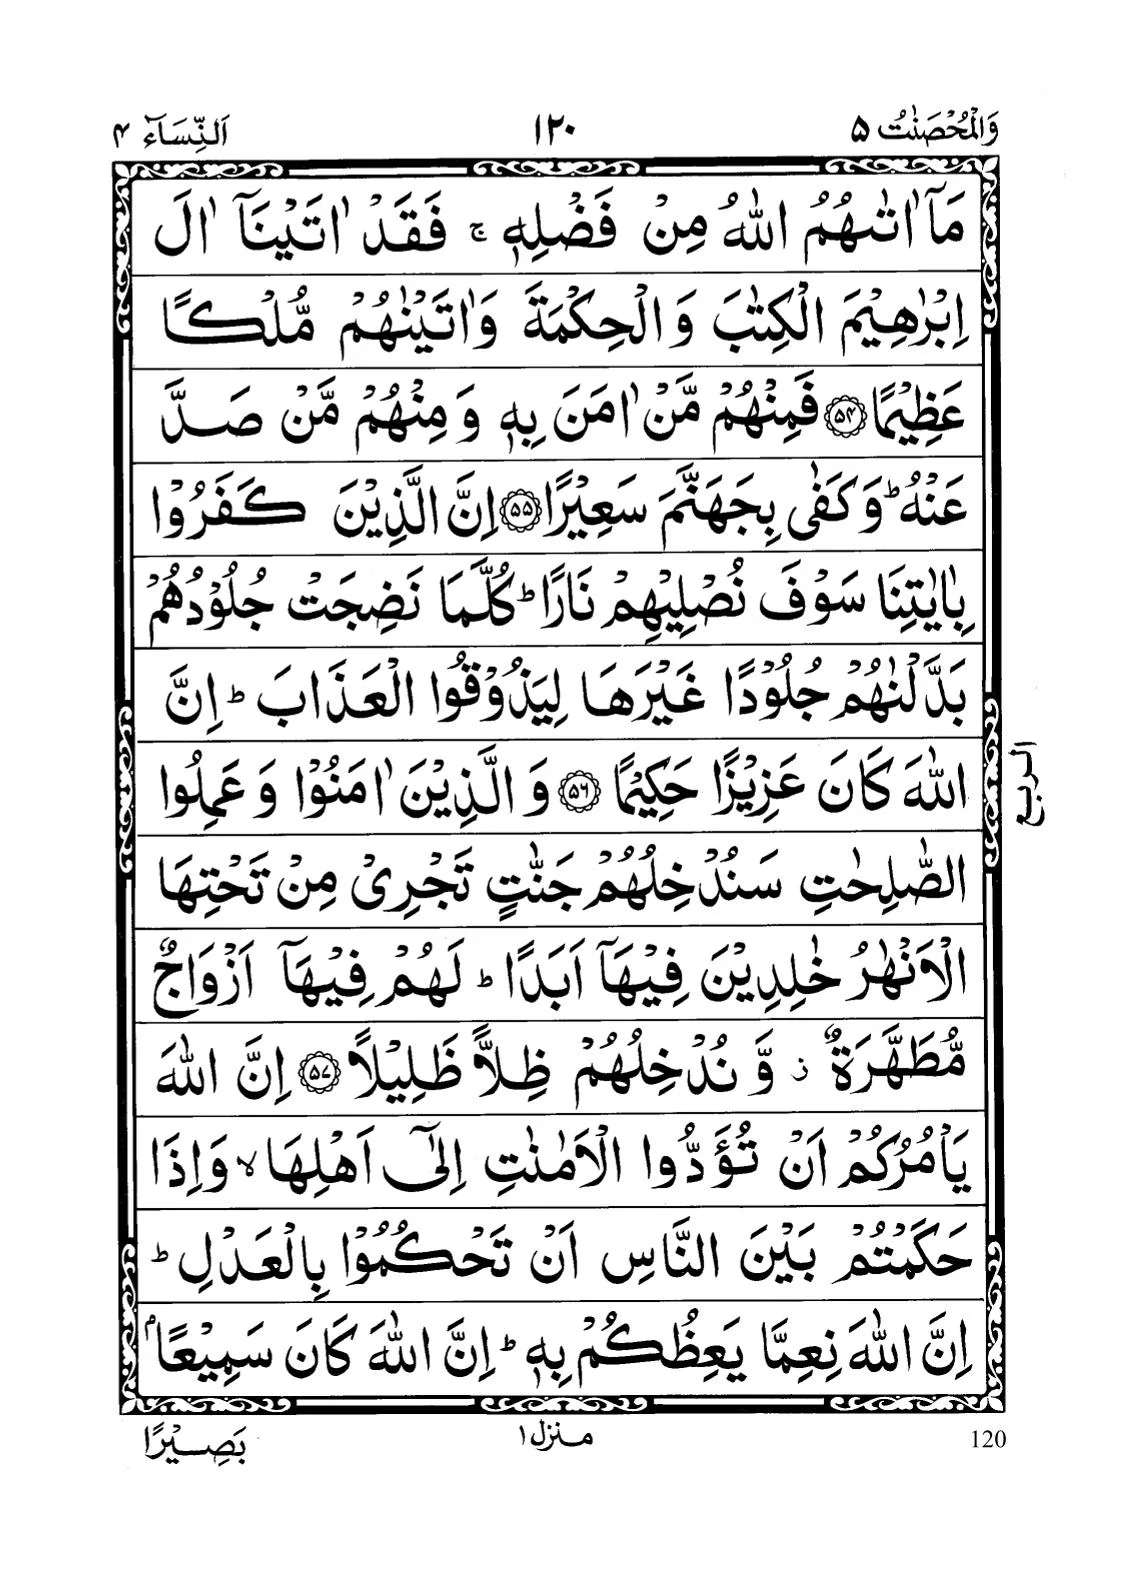 وَالْمُحْصَنٰتُ ٥
١٢٠
اَلنِّسَآء ٤
مَاۤ اٰتٰىهُمُ اللّٰهُ مِنْ فَضْلِهٖ ۚ فَقَدْ اٰتَيْنَاۤ اٰلَ
اِبْرٰهِيْمَ الْكِتٰبَ وَ الْحِكْمَةَ وَاٰتَيْنٰهُمْ مُّلْكًا
عَظِيْمًا ﴿۵۴﴾ فَمِنْهُمْ مَّنْ اٰمَنَ بِهٖ وَ مِنْهُمْ مَّنْ صَدَّ
عَنْهُ ؕ وَ كَفٰى بِجَهَنَّمَ سَعِيْرًا ﴿۵۵﴾ اِنَّ الَّذِيْنَ كَفَرُوْا
بِاٰيٰتِنَا سَوْفَ نُصْلِيْهِمْ نَارًا ؕ كُلَّمَا نَضِجَتْ جُلُوْدُهُمْ
بَدَّلْنٰهُمْ جُلُوْدًا غَيْرَهَا لِيَذُوْقُوا الْعَذَابَ ؕ اِنَّ
اللّٰهَ كَانَ عَزِيْزًا حَكِيْمًا ﴿۵۶﴾ وَ الَّذِيْنَ اٰمَنُوْا وَ عَمِلُوا
الربع
الصّٰلِحٰتِ سَنُدْخِلُهُمْ جَنّٰتٍ تَجْرِىْ مِنْ تَحْتِهَا
الْاَنْهٰرُ خٰلِدِيْنَ فِيْهَاۤ اَبَدًا ؕ لَهُمْ فِيْهَاۤ اَزْوَاجٌ
مُّطَهَّرَةٌ ز وَّ نُدْخِلُهُمْ ظِلًّا ظَلِيْلًا ﴿۵۷﴾ اِنَّ اللّٰهَ
يَاْمُرُكُمْ اَنْ تُؤَدُّوا الْاَمٰنٰتِ اِلٰٓى اَهْلِهَا ۙ وَاِذَا
حَكَمْتُمْ بَيْنَ النَّاسِ اَنْ تَحْكُمُوْا بِالْعَدْلِ ؕ
اِنَّ اللّٰهَ نِعِمَّا يَعِظُكُمْ بِهٖ ؕ اِنَّ اللّٰهَ كَانَ سَمِيْعًاۢ
120
منزل ١
بَصِيْرًا